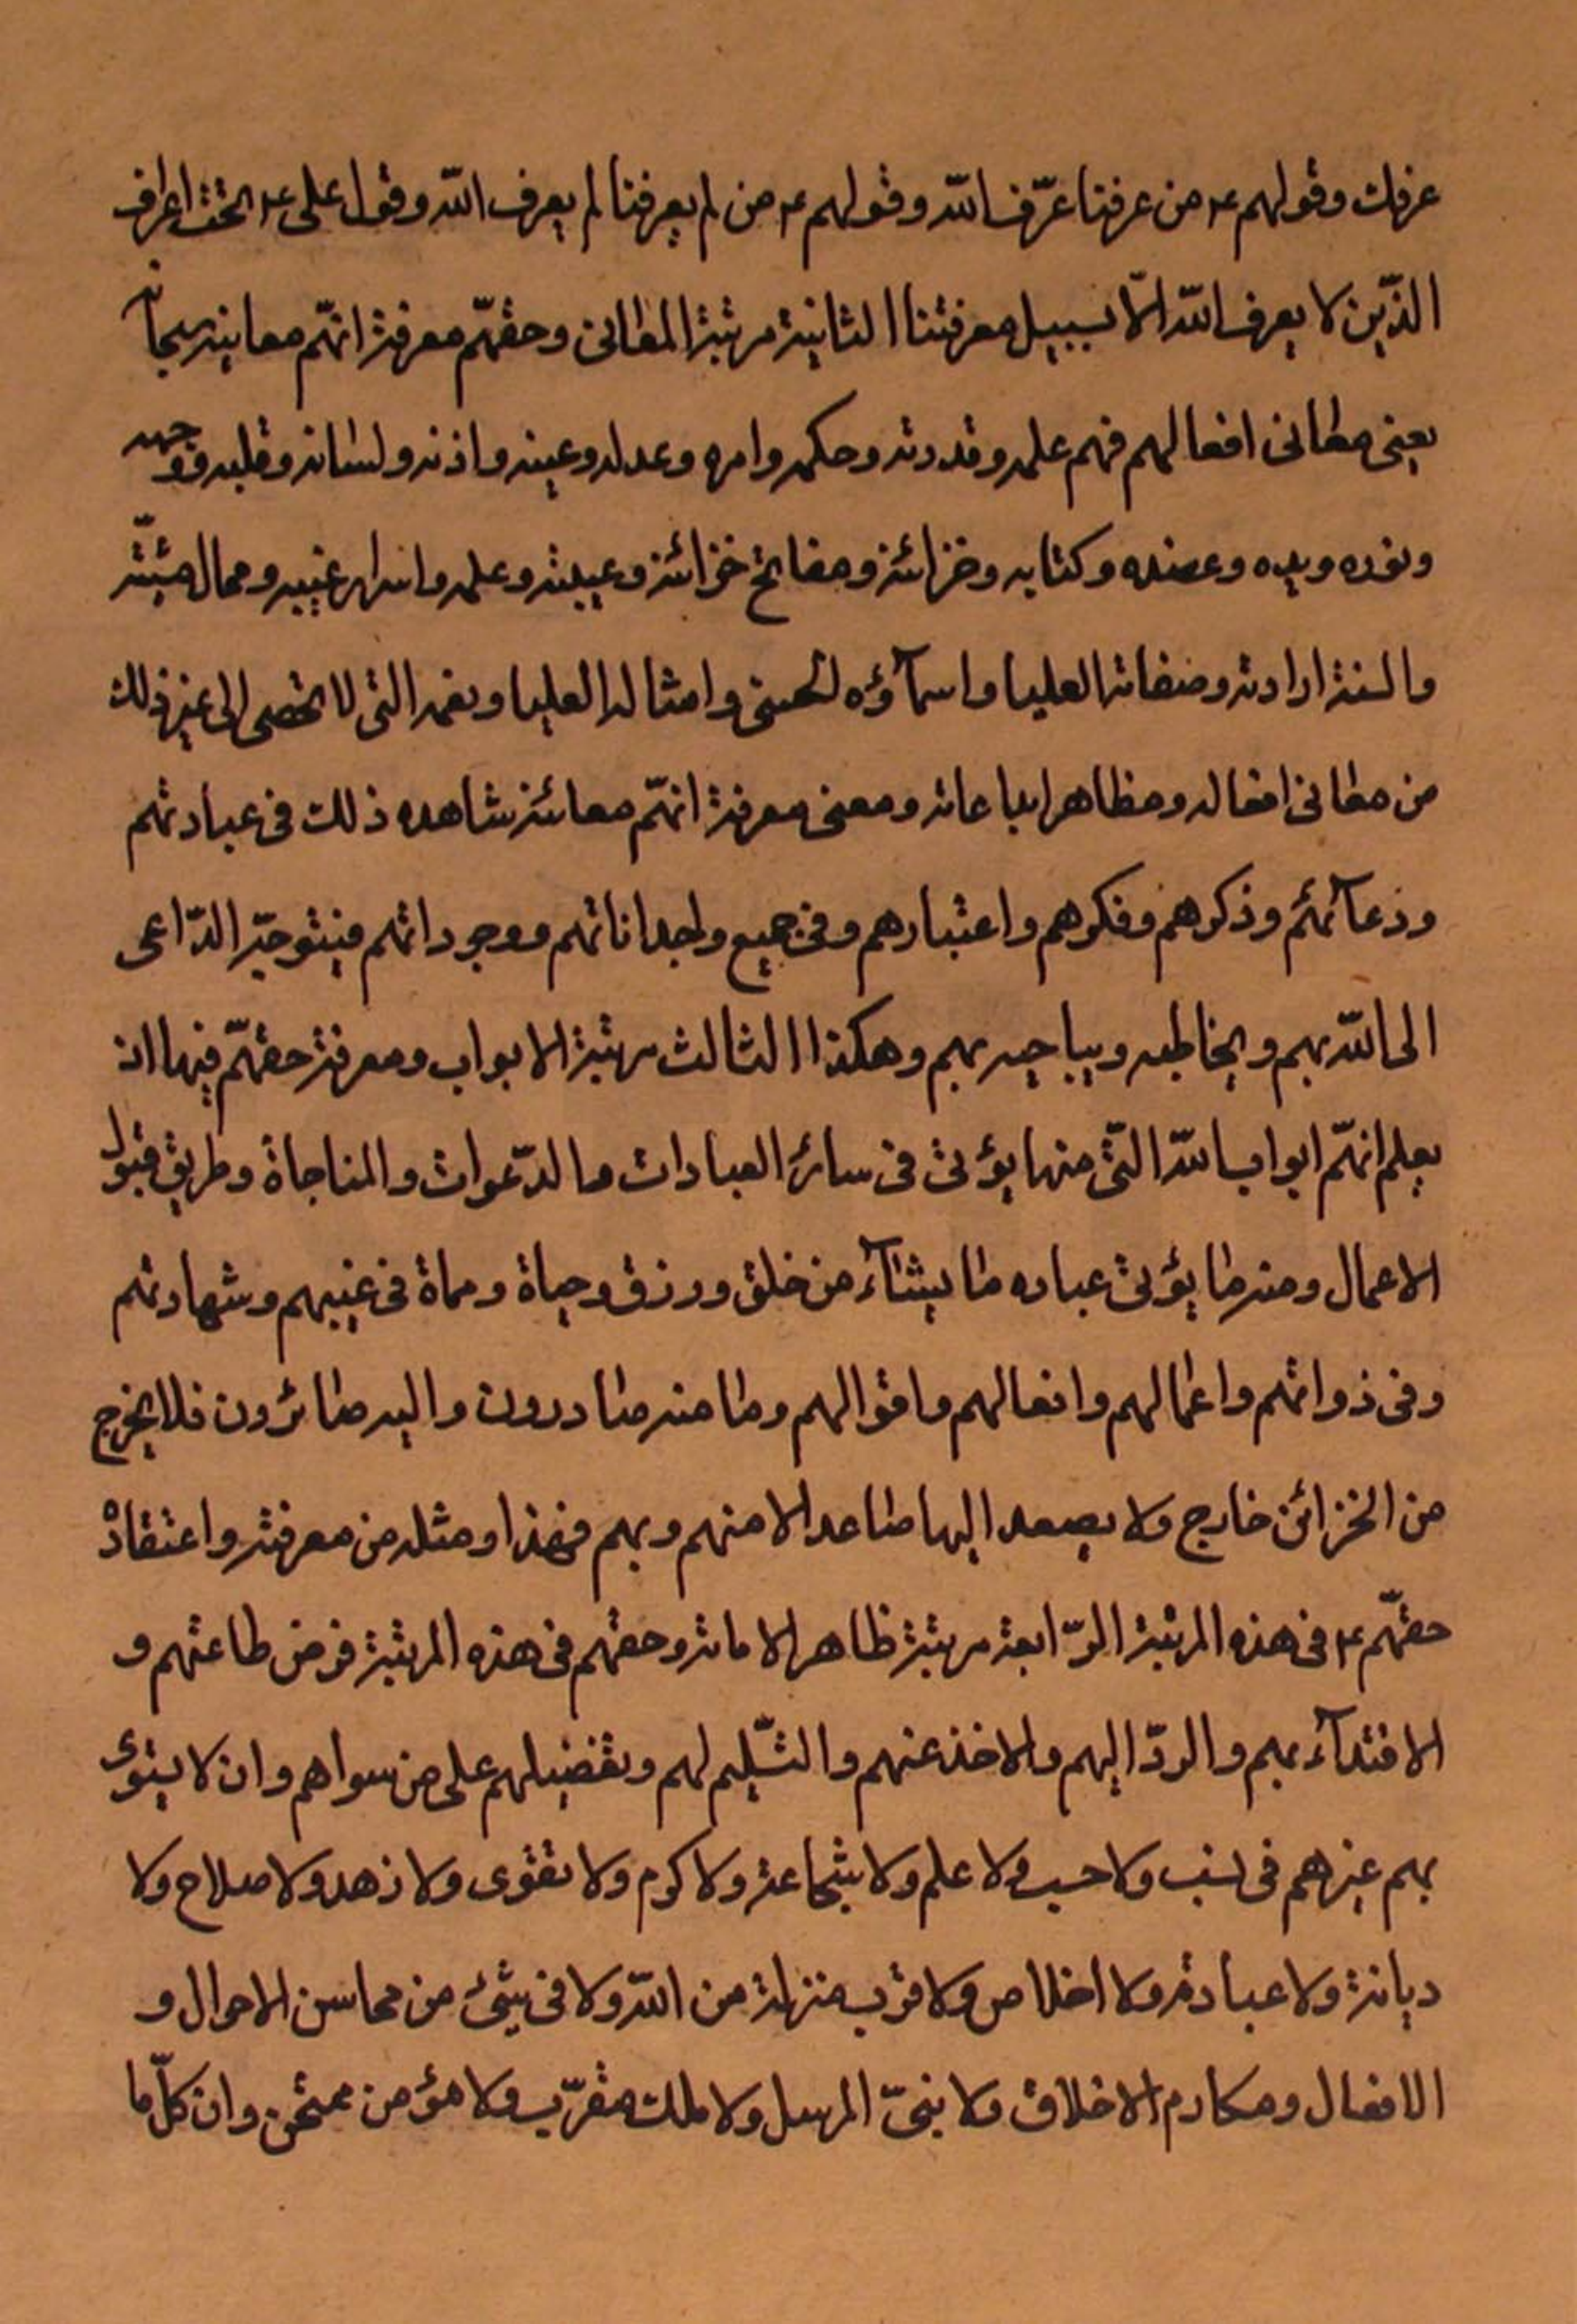 عرفك وقولهم ع من عرفنا عرّف الله وقولهم ع من لم يعرفنا لم يعرف الله وقول على ع نحن اعراف
الذّين لا يعرف الله الّا بسبيل معرفتنا الثانية مرتبة المعانى وحقهّم معرفة انهّم معانيه سبحانه
يعنى معانى افعالهم فهم علمه وقدرته وحكمه وامره وعدله وعينه واذنه ولسانه وقلبه ووجهه
ونوره ويده وعضده وكتابه وخزائنه ومفاتح خزائنه وعيبته وعلمه واسرار غيبه ومحال مشيّته
والسنة ارادته وصفاته العليا واسمآؤه الحسنى وامثاله العليا ونعمه التى لا تحصى الى غير ذلك
من معانى افعاله ومظاهر ابداعاته ومعنى معرفة انهّم معانيه شاهده ذلك فى عبادتهم
ودعآئهم وذكرهم وفكرهم واعتبارهم وفى جميع واجداناتهم ووجوداتهم فيتوجّه الدّاعى
الى الله بهم ويخاطبه ويناجيه بهم وهكذا الثالث مرتبة الابواب ومعرفة حقهّم فيها ان
يعلم انهّم ابواب الله التّى منها يؤتى فى سائر العبادات والدّعوات والمناجاة وطريق قبول
الاعمال ومنه ما يؤتى عباده ما يشآء من خلق ورزق وحياة ومماة فى غيبهم وشهادتهم
وفى ذواتهم واعمالهم وافعالهم واقوالهم وما منه صادرون واليه صائرون فلا يخرج
من الخزائن خارج ولا يصعد اليها صاعد الا منهم وبهم فهذا ومثله من معرفته واعتقاد
حقهّم ع فى هذه المرتبة الرّابعة مرتبة ظاهر الامامة وحقهم فى هذه المرتبة فرض طاعتهم و
الاقتدآء بهم والردّ اليهم والاخذ عنهم والتسّليم لهم وتفضيلهم على من سواهم وان لا يسوى
بهم غيرهم فى نسب ولا حسب ولا علم ولا شجاعة ولا كرم ولا تقوى ولا زهد ولا صلاح ولا
ديانة ولا عبادة ولا اخلاص ولا قرب منزلة من الله ولا فى شئ من محاسن الاحوال و
الافعال ومكارم الاخلاق ولا نبىّ المرسل ولا ملك مقرّب ولا مؤمن ممتحن وان كلّ ما